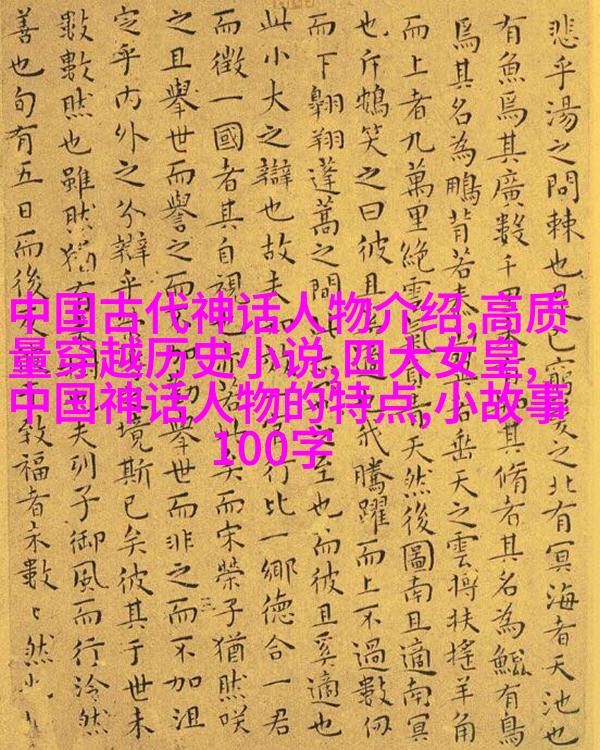 中国古代神话人物介绍,高质
量穿越历史小说,四大女皇,
中国神话人物的特点,小故事
100字
悲乎湯之問棘也是已窮髮之北有冥海者天池也
有魚焉其廣數千里其脩者其名為鯤有鳥
焉其名為鵬背若泰若垂天之雲摶扶搖羊角
而上者九萬里絕雲氣負天然後圖南且適南冥
也斥鴳笑之曰彼且適也我騰躍而上不過數仞
而下翱翔蓬蒿之間此之至也而彼且奚適也
此小大之辯也故夫行比一鄉德合一君
而徵一國者其自視也若此矣而宋榮子猶然咲
之且舉世而譽之而不加勸舉世而非之而不加沮
定乎內外之分辯乎境斯已矣彼其于世未
數數然也雖然猶有夫列子御風而行泠然
善也旬有五日而後致福者未數々然也